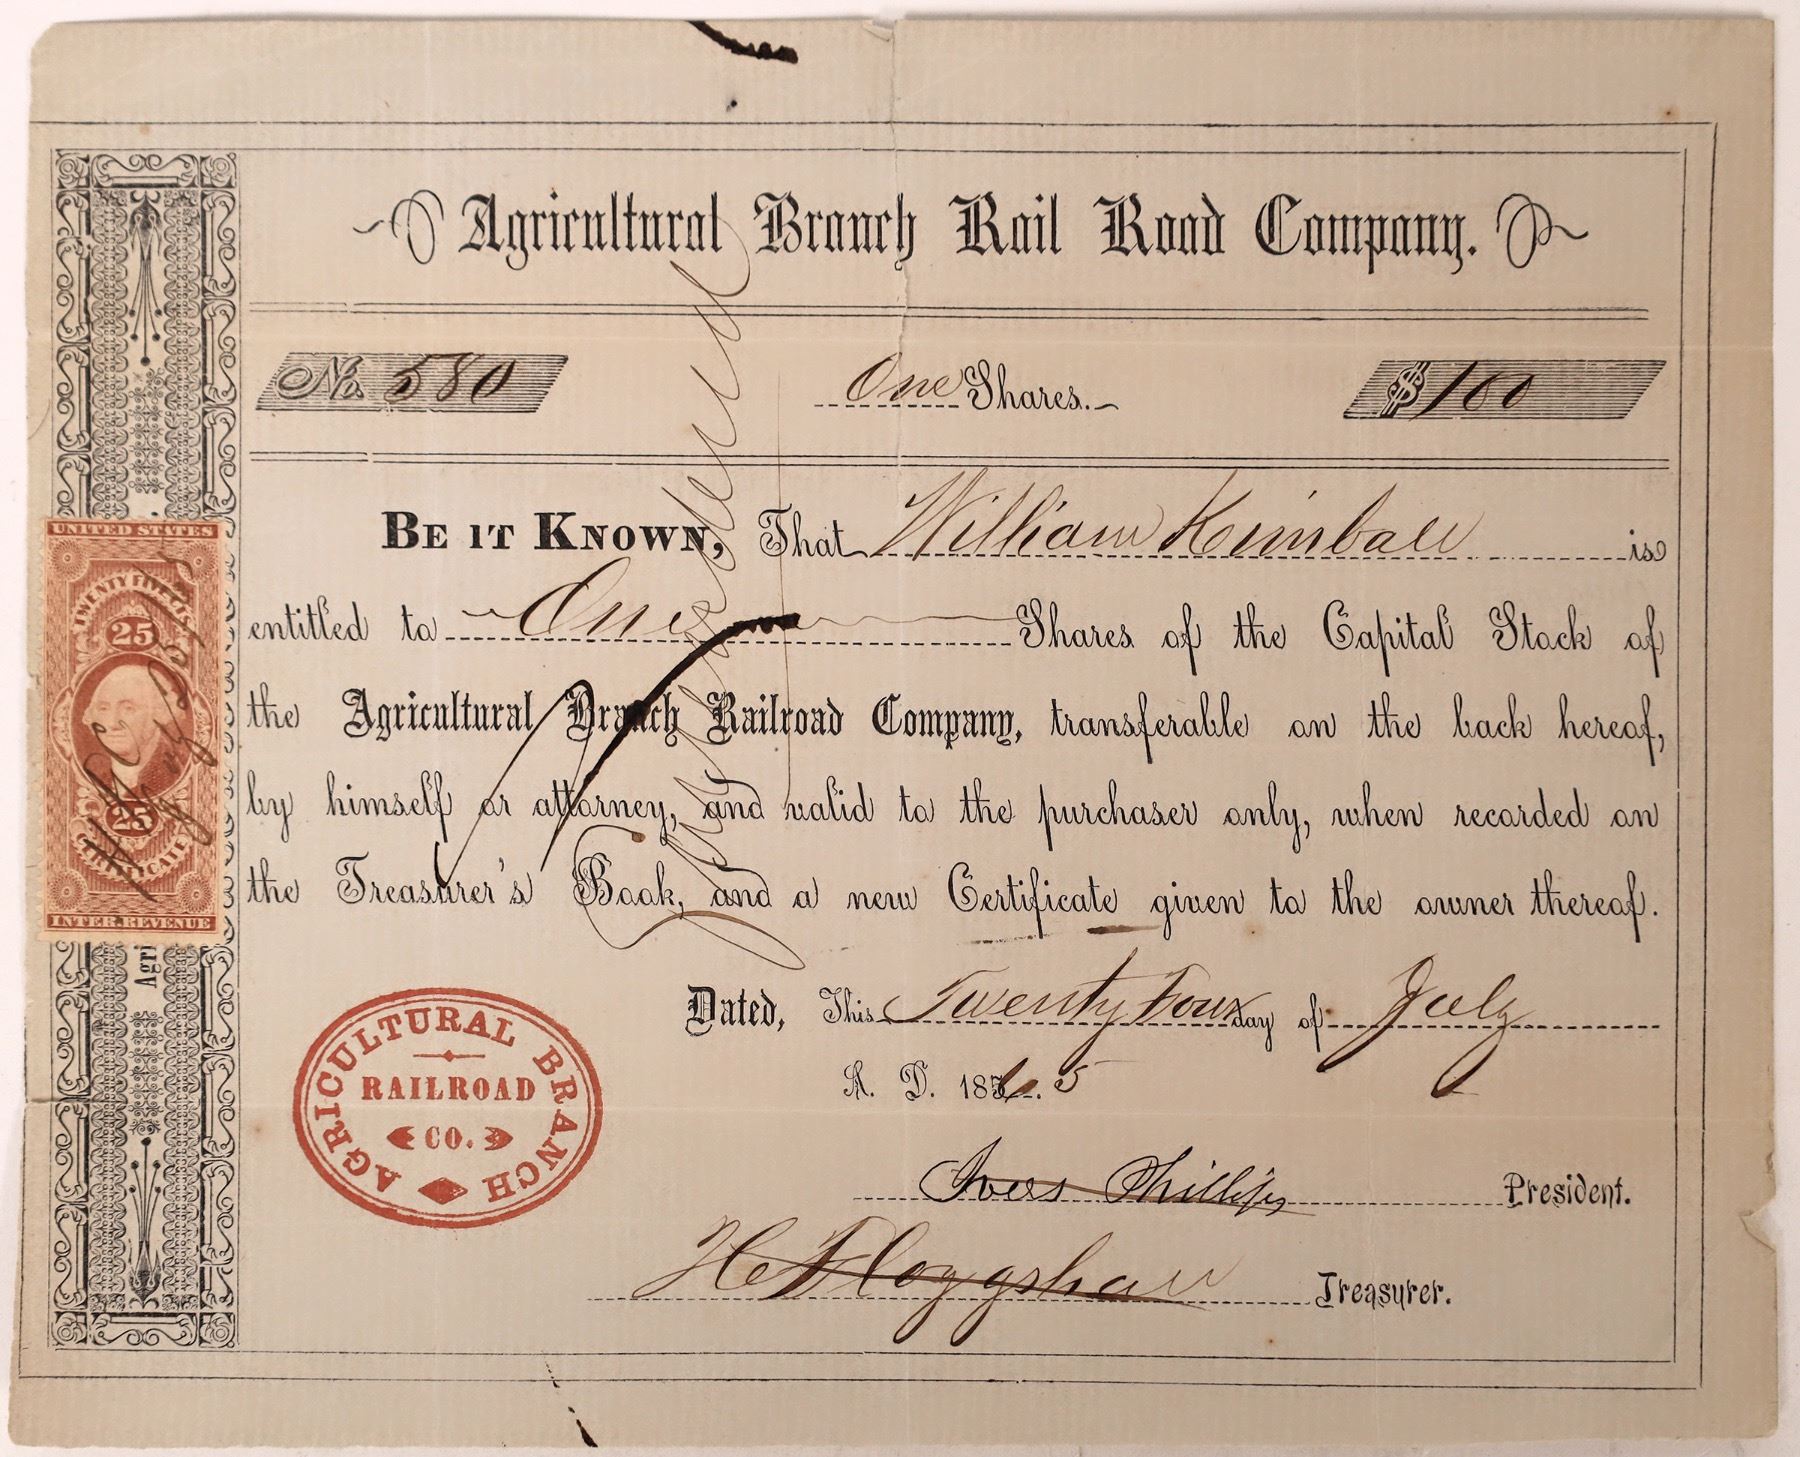 Agricultural Branch Rail Road Company.
No. 580 One Shares. $ 100
BE IT KNOWN, That William Kimball is
entitled to One Shares of the Capital Stock of
the Agricultural Branch Railroad Company, transferable on the back hereof,
by himself or attorney, and valid to the purchaser only, when recorded on
the Treasurer's Book, and a new Certificate given to the owner thereof.
Dated, This Twenty Four day of July
A. D. 1865
Ivers Phillips President.
Treasurer.
Surrendered
UNITED STATES
TWENTY FIVE CENTS
25
25
CERTIFICATE
INTER. REVENUE
Agri
AGRICULTURAL BRANCH
RAILROAD
CO.